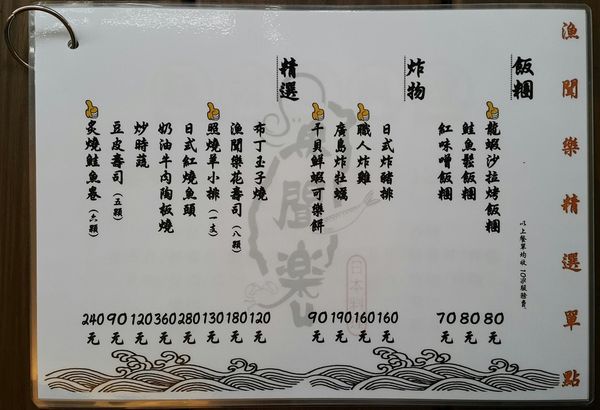 漁聞樂精選單點
飯糰
龍蝦沙拉烤飯糰 80元
鮭魚鬆飯糰 80元
紅味噌飯糰 70元
以上餐單均收10%服務費。
炸物
日式炸豬排 160元
職人炸雞 160元
廣島炸牡蠣 190元
干貝鮮蝦可樂餅 90元
精選
布丁玉子燒 120元
漁聞樂花壽司(八顆) 180元
照燒草小排(一支) 130元
日式紅燒魚頭 280元
奶油牛肉陶板燒 360元
炒時蔬 120元
豆皮壽司(五顆) 90元
炙燒鮭魚卷(六顆) 240元
漁聞楽
日本料理